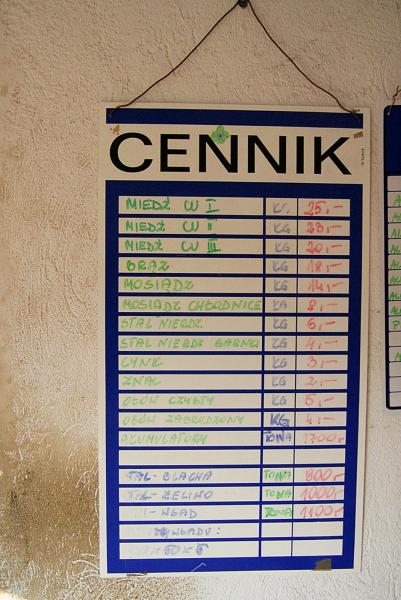 CENNIK
MIEDŹ CU I KG 25,-
MIEDŹ CU II KG 23,-
MIEDŹ CU III KG 20,-
BRĄZ KG 18,-
MOSIĄDZ KG 14,-
MOSIĄDZ CHŁODNICE KG 8,-
STAL NIERDZ KG 6,-
STAL NIERDZ KG 4,-
CYNK KG 3,-
ZNAL KG 2,-
OŁÓW CZYSTY KG 5,-
OŁÓW ZABRUDZONY KG 4,-
AKUMULATORY TONA 1700,-
STAL-BLACHA TONA 800,-
STAL-ŻELIWO TONA 1000,-
WSAD TONA 1100,-
WSADU: